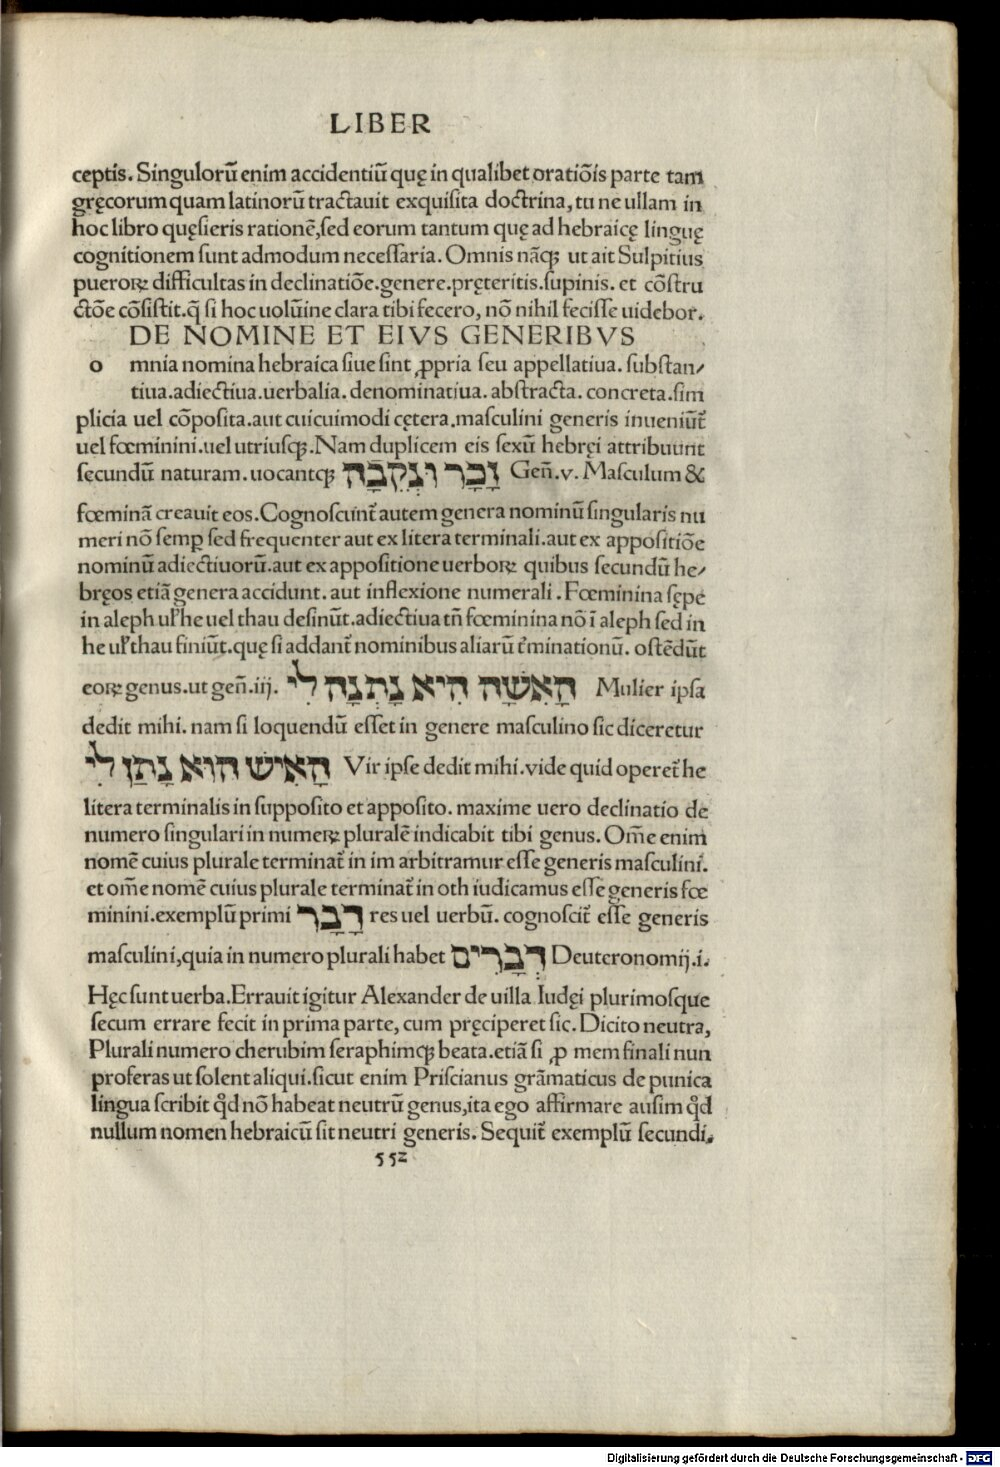 LIBER
ceptis. Singulorū enim accidentiū quę in qualibet oratiōis parte tam
gręcorum quam latinorū tractauit exquisita doctrina, tu ne ullam in
hoc libro quęsieris rationē, sed eorum tantum quę ad hebraicę linguę
cognitionem sunt admodum necessaria. Omnis nāqꝫ ut ait Sulpitius
pueroꝝ difficultas in declinatiōe.genere.pręteritis.supinis. et cōstru
ctōe cōsistit.q̄ si hoc uolūine clara tibi fecero, nō nihil fecisse uidebor.
DE NOMINE ET EIVS GENERIBVS
o mnia nomina hebraica siue sint ꝓpria seu appellatiua. substan/
tiua.adiectiua.uerbalia. denominatiua. abstracta. concreta.sim
plicia uel cōposita.aut cuicuimodi cętera.masculini generis inueniūt̄
uel fœminini.uel utriusqꝫ.Nam duplicem eis sexū hebręi attribuunt
secundū naturam.uocantqꝫ זָכָר וּנְקֵבָה Geñ.v. Masculum &
fœminā creauit eos.Cognoscunt̄ autem genera nominū singularis nu
meri nō semꝑ sed frequenter aut ex litera terminali.aut ex appositiōe
nominū adiectiuorū.aut ex appositione uerboꝝ quibus secundū he/
bręos etiā genera accidunt. aut inflexione numerali. Fœminina sępe
in aleph uꝉ he uel thau desinūt.adiectiua tñ fœminina nō ī aleph sed in
he uꝉ thau finiūt.quę si addant̄ nominibus aliarū t̄minationū. ostēdūt
eoꝝ genus.ut geñ.iij. הָאִשָּׁה הִיא נָתְנָה לִי Mulier ipsa
dedit mihi. nam si loquendū esset in genere masculino sic diceretur
הָאִישׁ הוּא נָתַן לִי Vir ipse dedit mihi.vide quid operet̄ he
litera terminalis in supposito et apposito. maxime uero declinatio de
numero singulari in numeꝝ pluralē indicabit tibi genus. Om̄e enim
nomē cuius plurale terminat̄ in im arbitramur esse generis masculini.
et om̄e nomē cuius plurale terminat̄ in oth iudicamus esse generis fœ
minini.exemplū primi דָּבָר res uel uerbū. cognoscit̄ esse generis
masculini,quia in numero plurali habet דְּבָרִים Deuteronomij.i.
Hęc sunt uerba.Errauit igitur Alexander de uilla Iudęi plurimosque
secum errare fecit in prima parte, cum pręciperet sic. Dicito neutra,
Plurali numero cherubim seraphimqꝫ beata.etiā si ꝓ mem finali nun
proferas ut solent aliqui.sicut enim Priscianus grāmaticus de punica
lingua scribit qd̄ nō habeat neutrū genus,ita ego affirmare ausim qd̄
nullum nomen hebraicū sit neutri generis. Sequit̄ exemplū secundi.
552
Digitalisierung gefördert durch die Deutsche Forschungsgemeinschaft - DFG